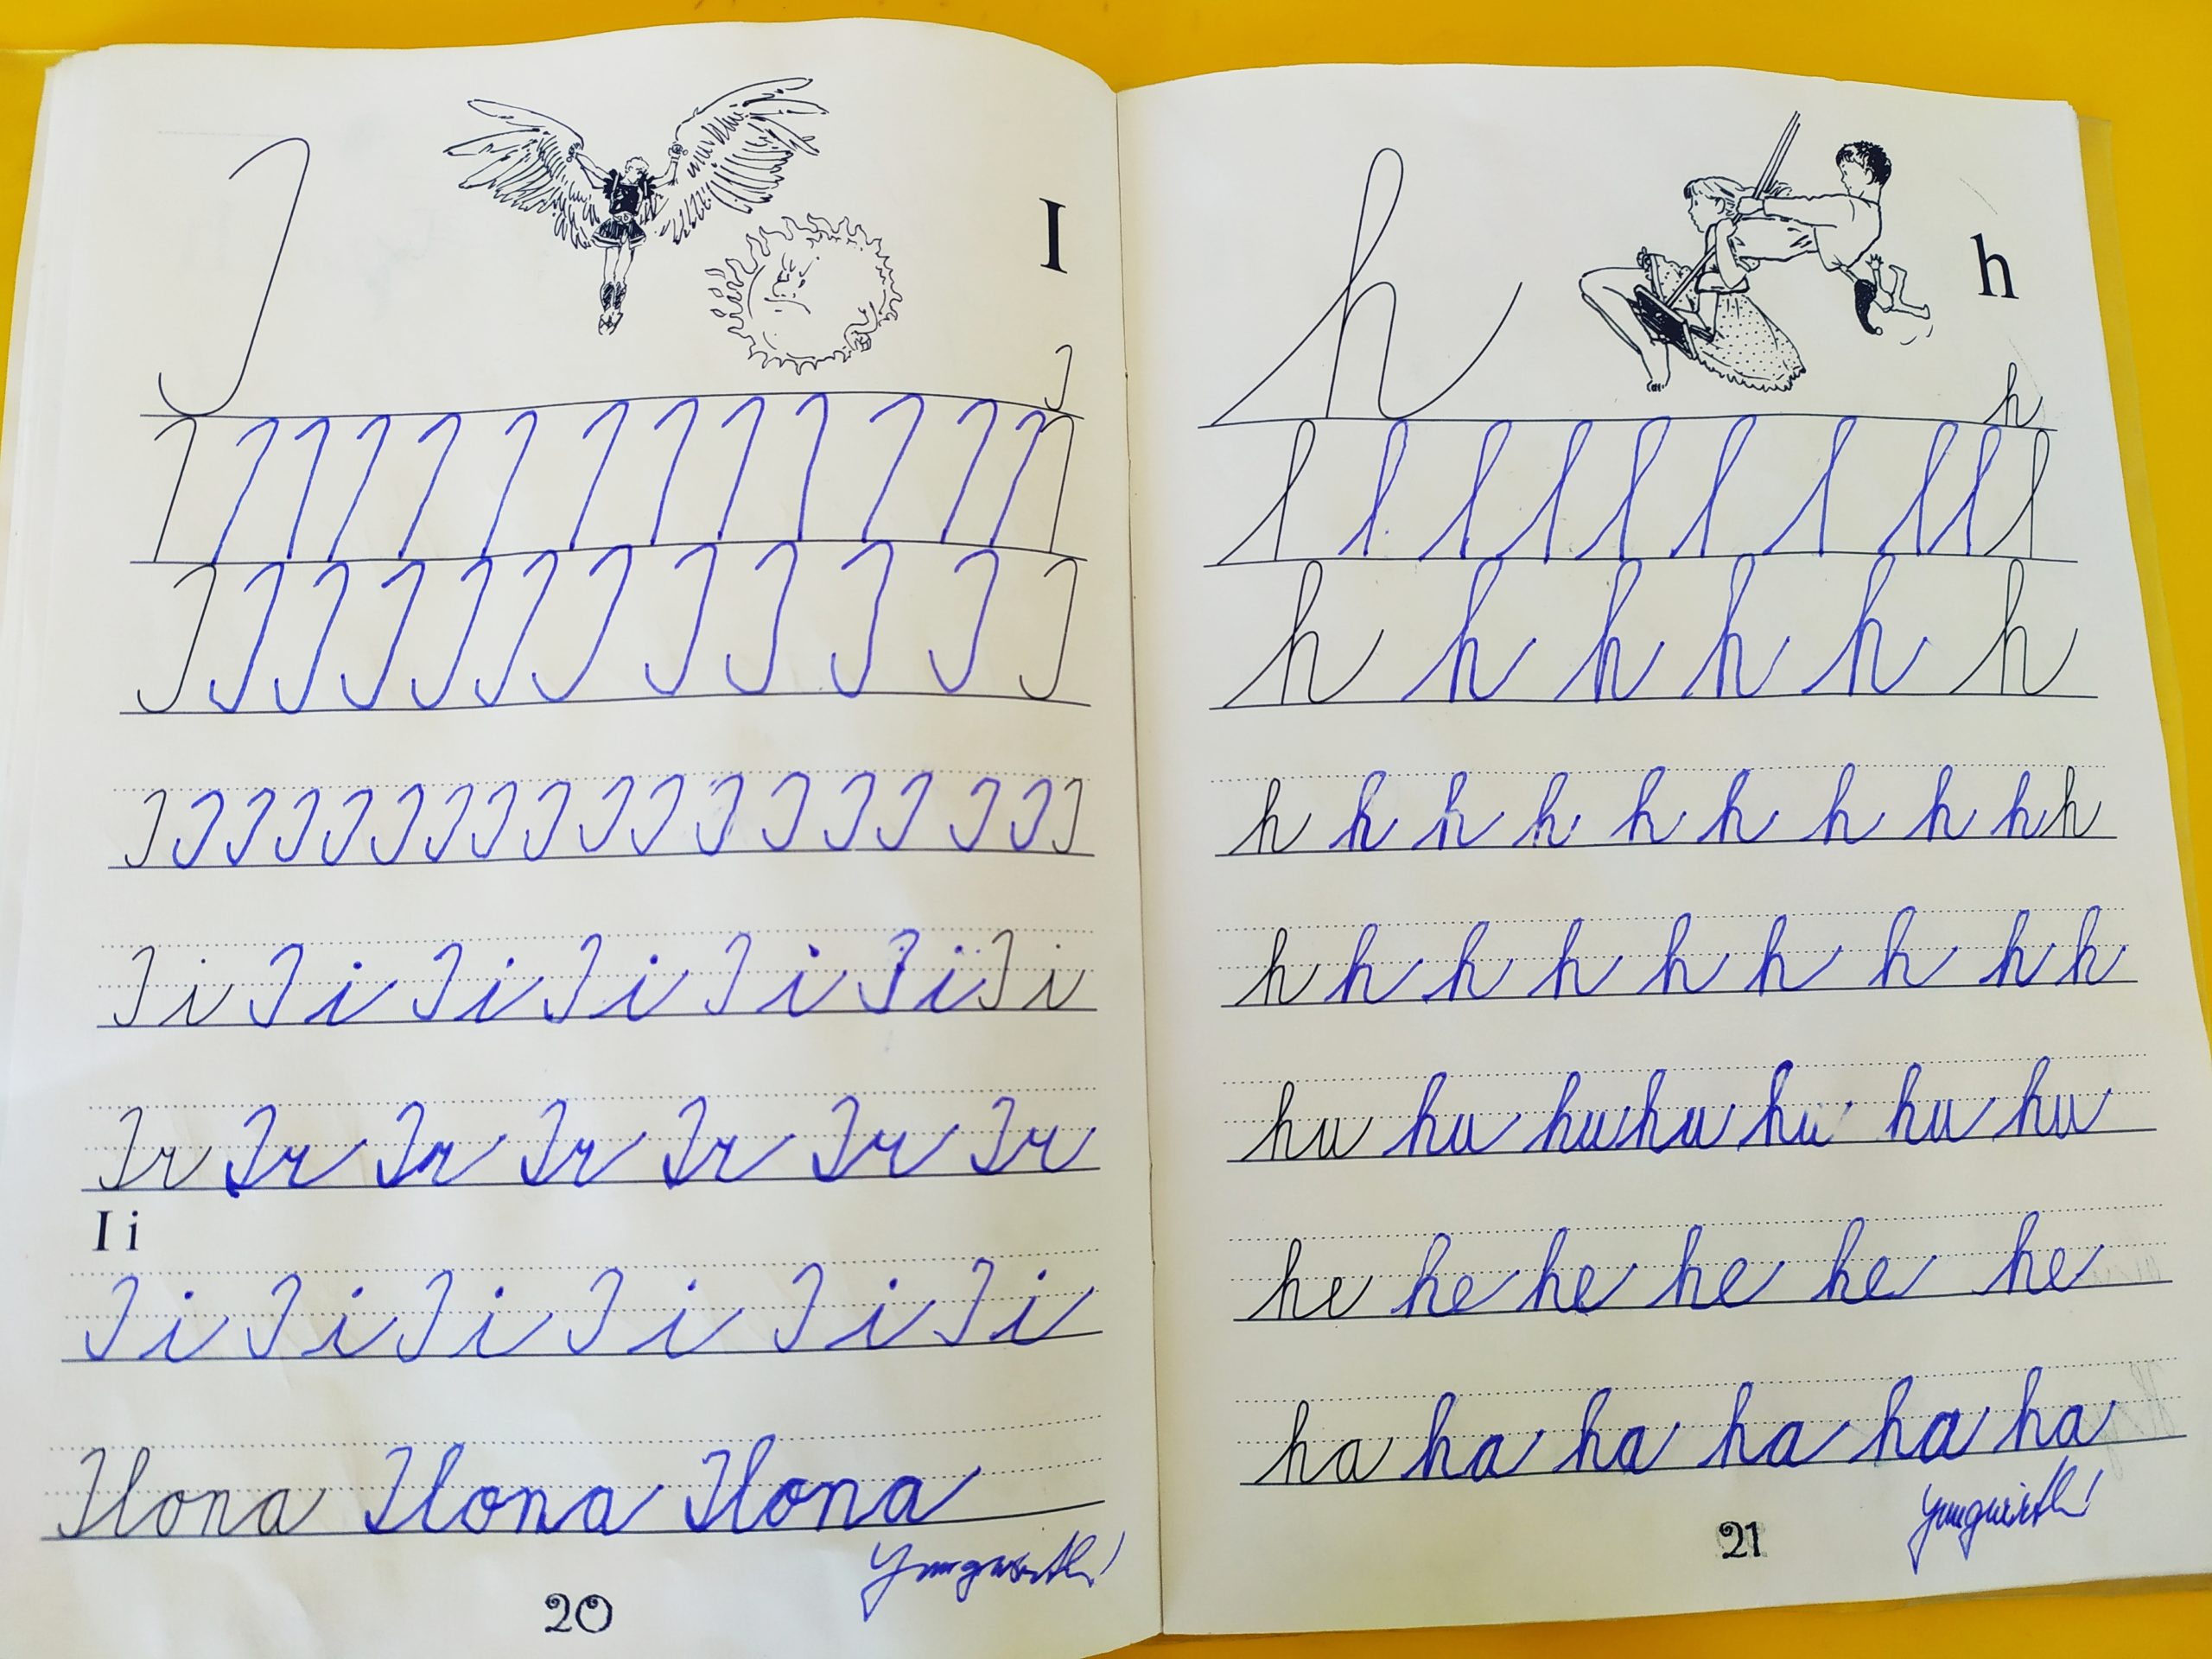 I
I
I
I I I I I I I I I I I I I I
I I I I I I I I I I I I
I I I I I I I I I I I I I I I I I I
I i I i I i I i I i I i I i
Ir Ir Ir Ir Ir Ir Ir
I i
I i I i I i I i I i I i
Ilona Ilona Ilona
20
h
h
h
l l l l l l l l l l
h h h h h h
h h h h h h h h h h
h h h h h h h h h
hu hu hu hu hu hu hu
he he he he he he
ha ha ha ha ha ha
21